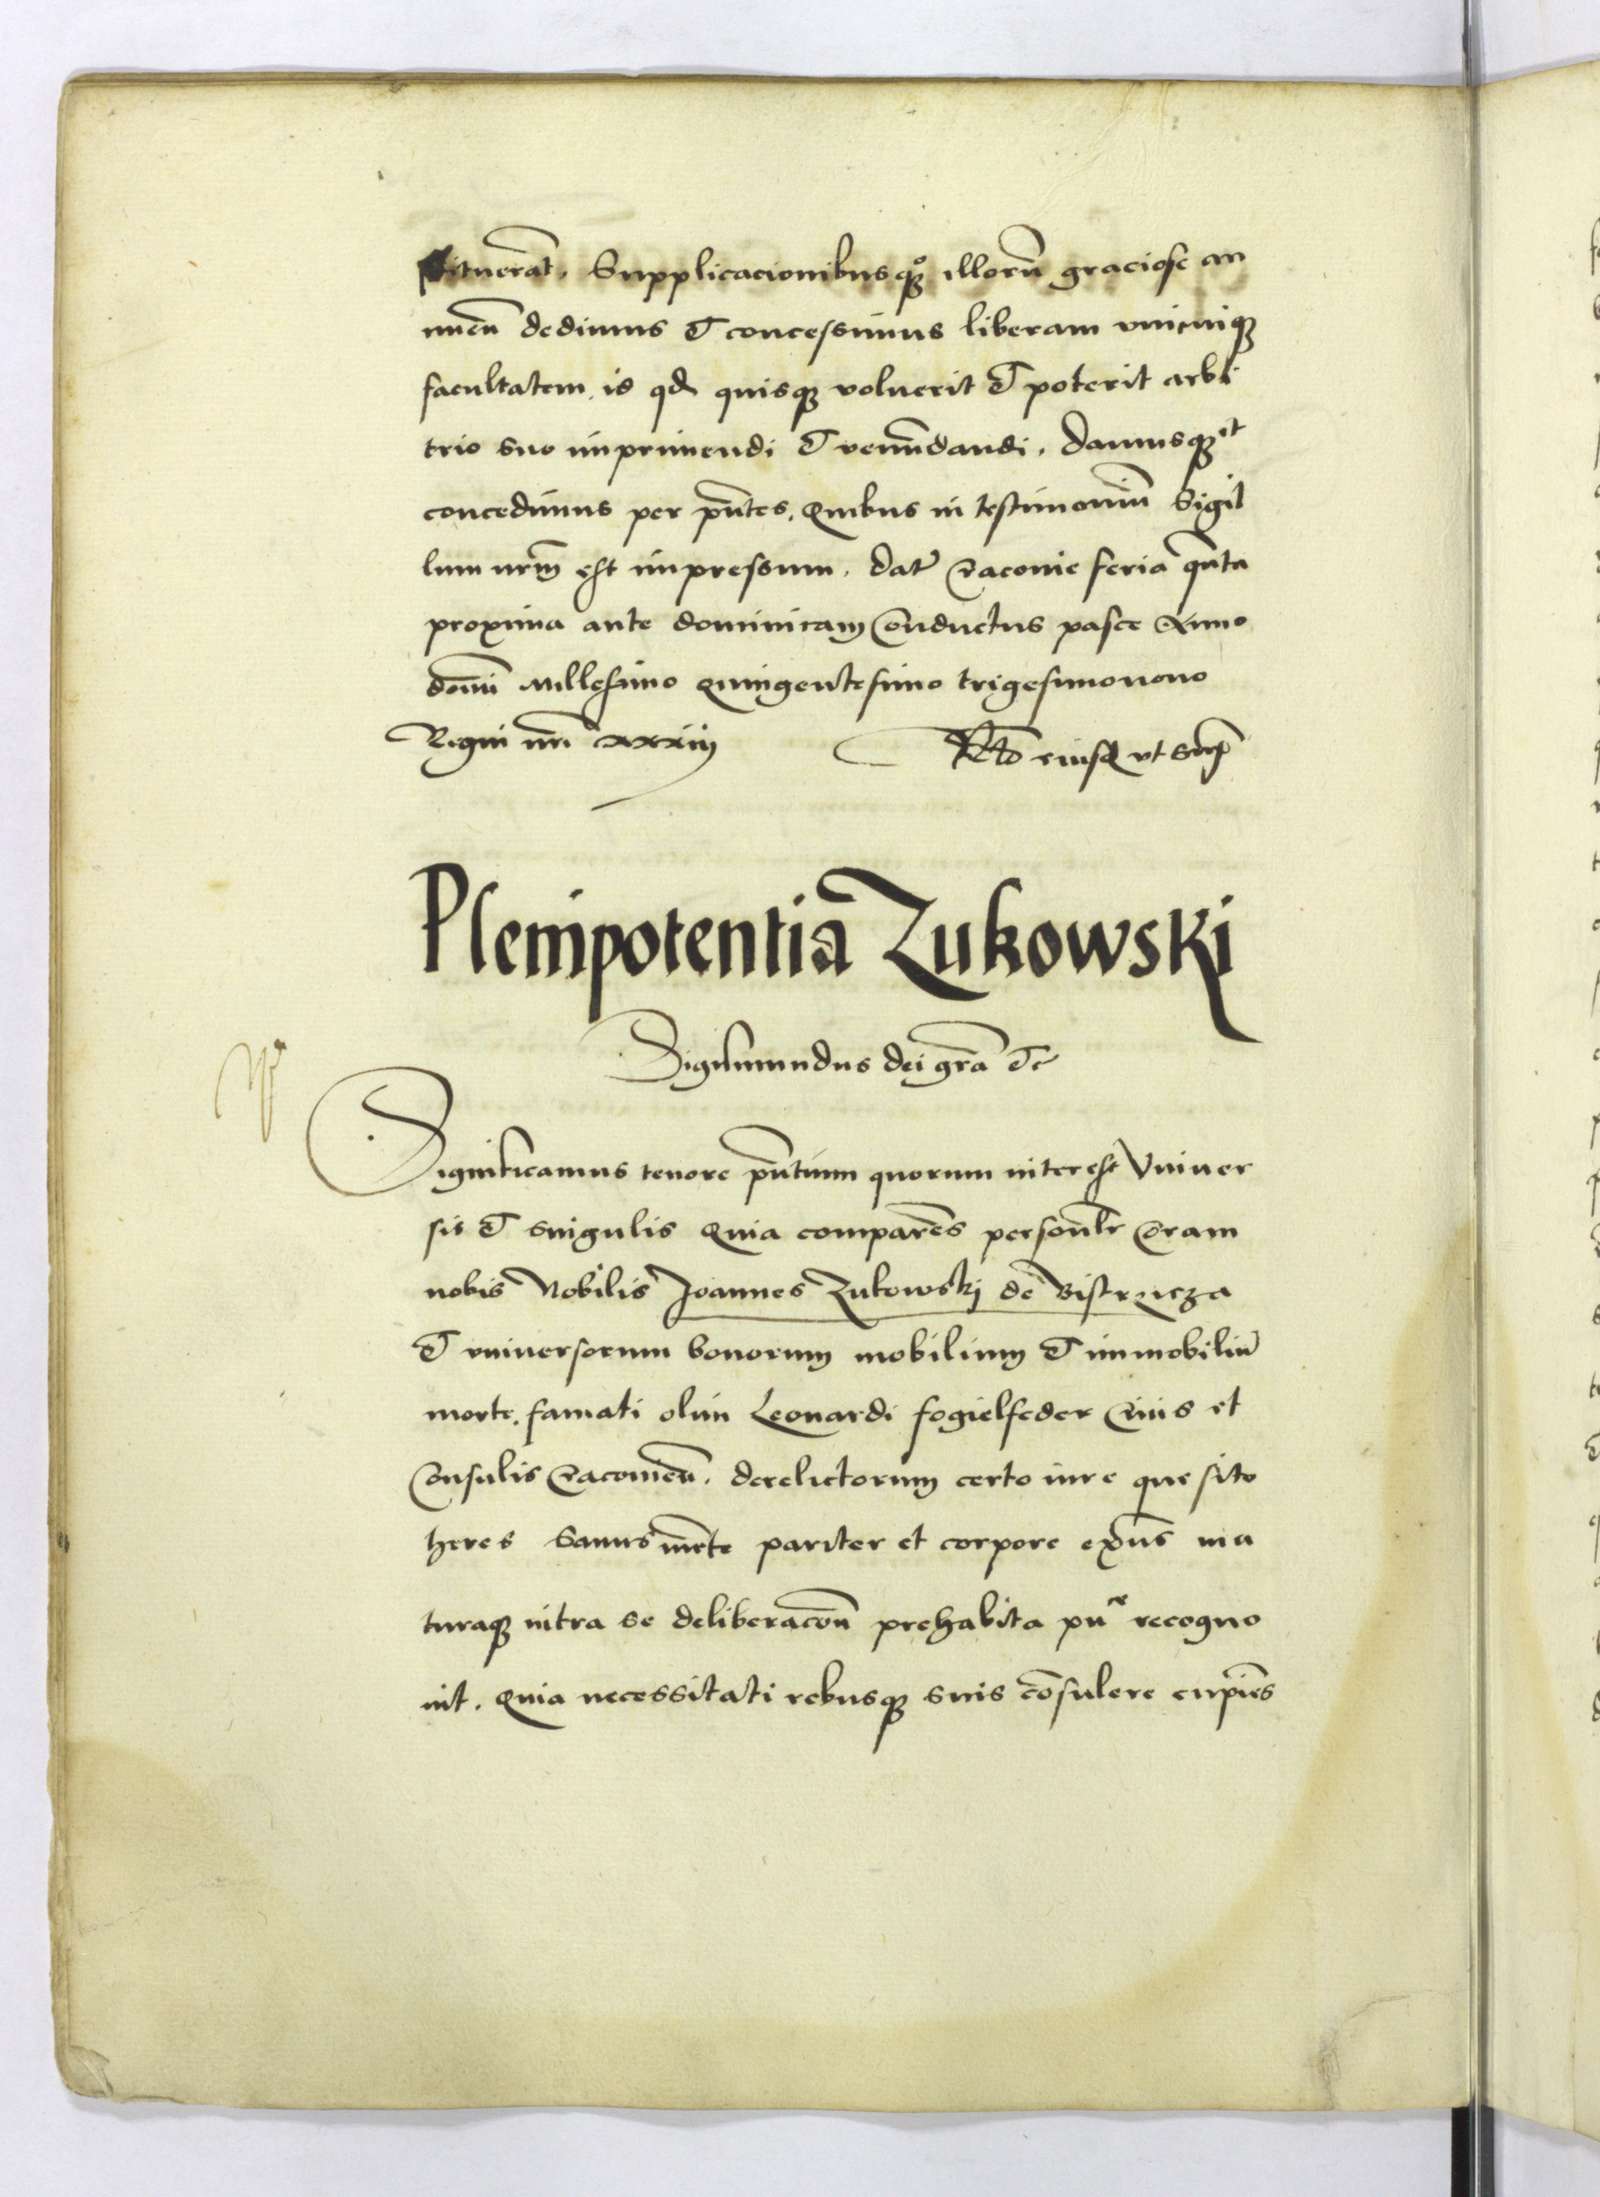 stituerāt. Supplicacionibusqꝫ illorū graciose an
nuēn dedimus et concessimus liberam unicuiqꝫ
facultatem, id qđ quisqꝫ voluerit et poterit arbi
trio suo imprimendi et venūdandi. Damusqꝫ et
concedimus per pn̄tes, Quibus in testimoniū Sigil
lum nr̄m est impressum. Dat̄ Cracovie feria quīta
proxima ante dominicam Conductus pasce Anno
domī Millesimo Quingentesimo trigesimonono
Regni nr̄i xxxiij
Rel̄o eiusd ut sup̄
Plenipotentia Zukowski
Sigismundus dei gr̄a etc
Significamus tenore pn̄tium quorum interest Vniver
sis et singulis Quia comparēs person̄lr Coram
nobis Nobilis Joannes Zukowskj de Bistrzicza
et universorum bonorum mobilium et immobiliū
morte, famati olim Leonardi fogielfeder Civis et
Consulis Cracovieñ. derelictorum certo iure quesito
heres Sanus mēte pariter et corpore exn̄s ma
turaqꝫ intra se deliberacōn prehabita pn̄ recogno
vit. Quia necessitati rebusqꝫ suis cōsulere cupiēs